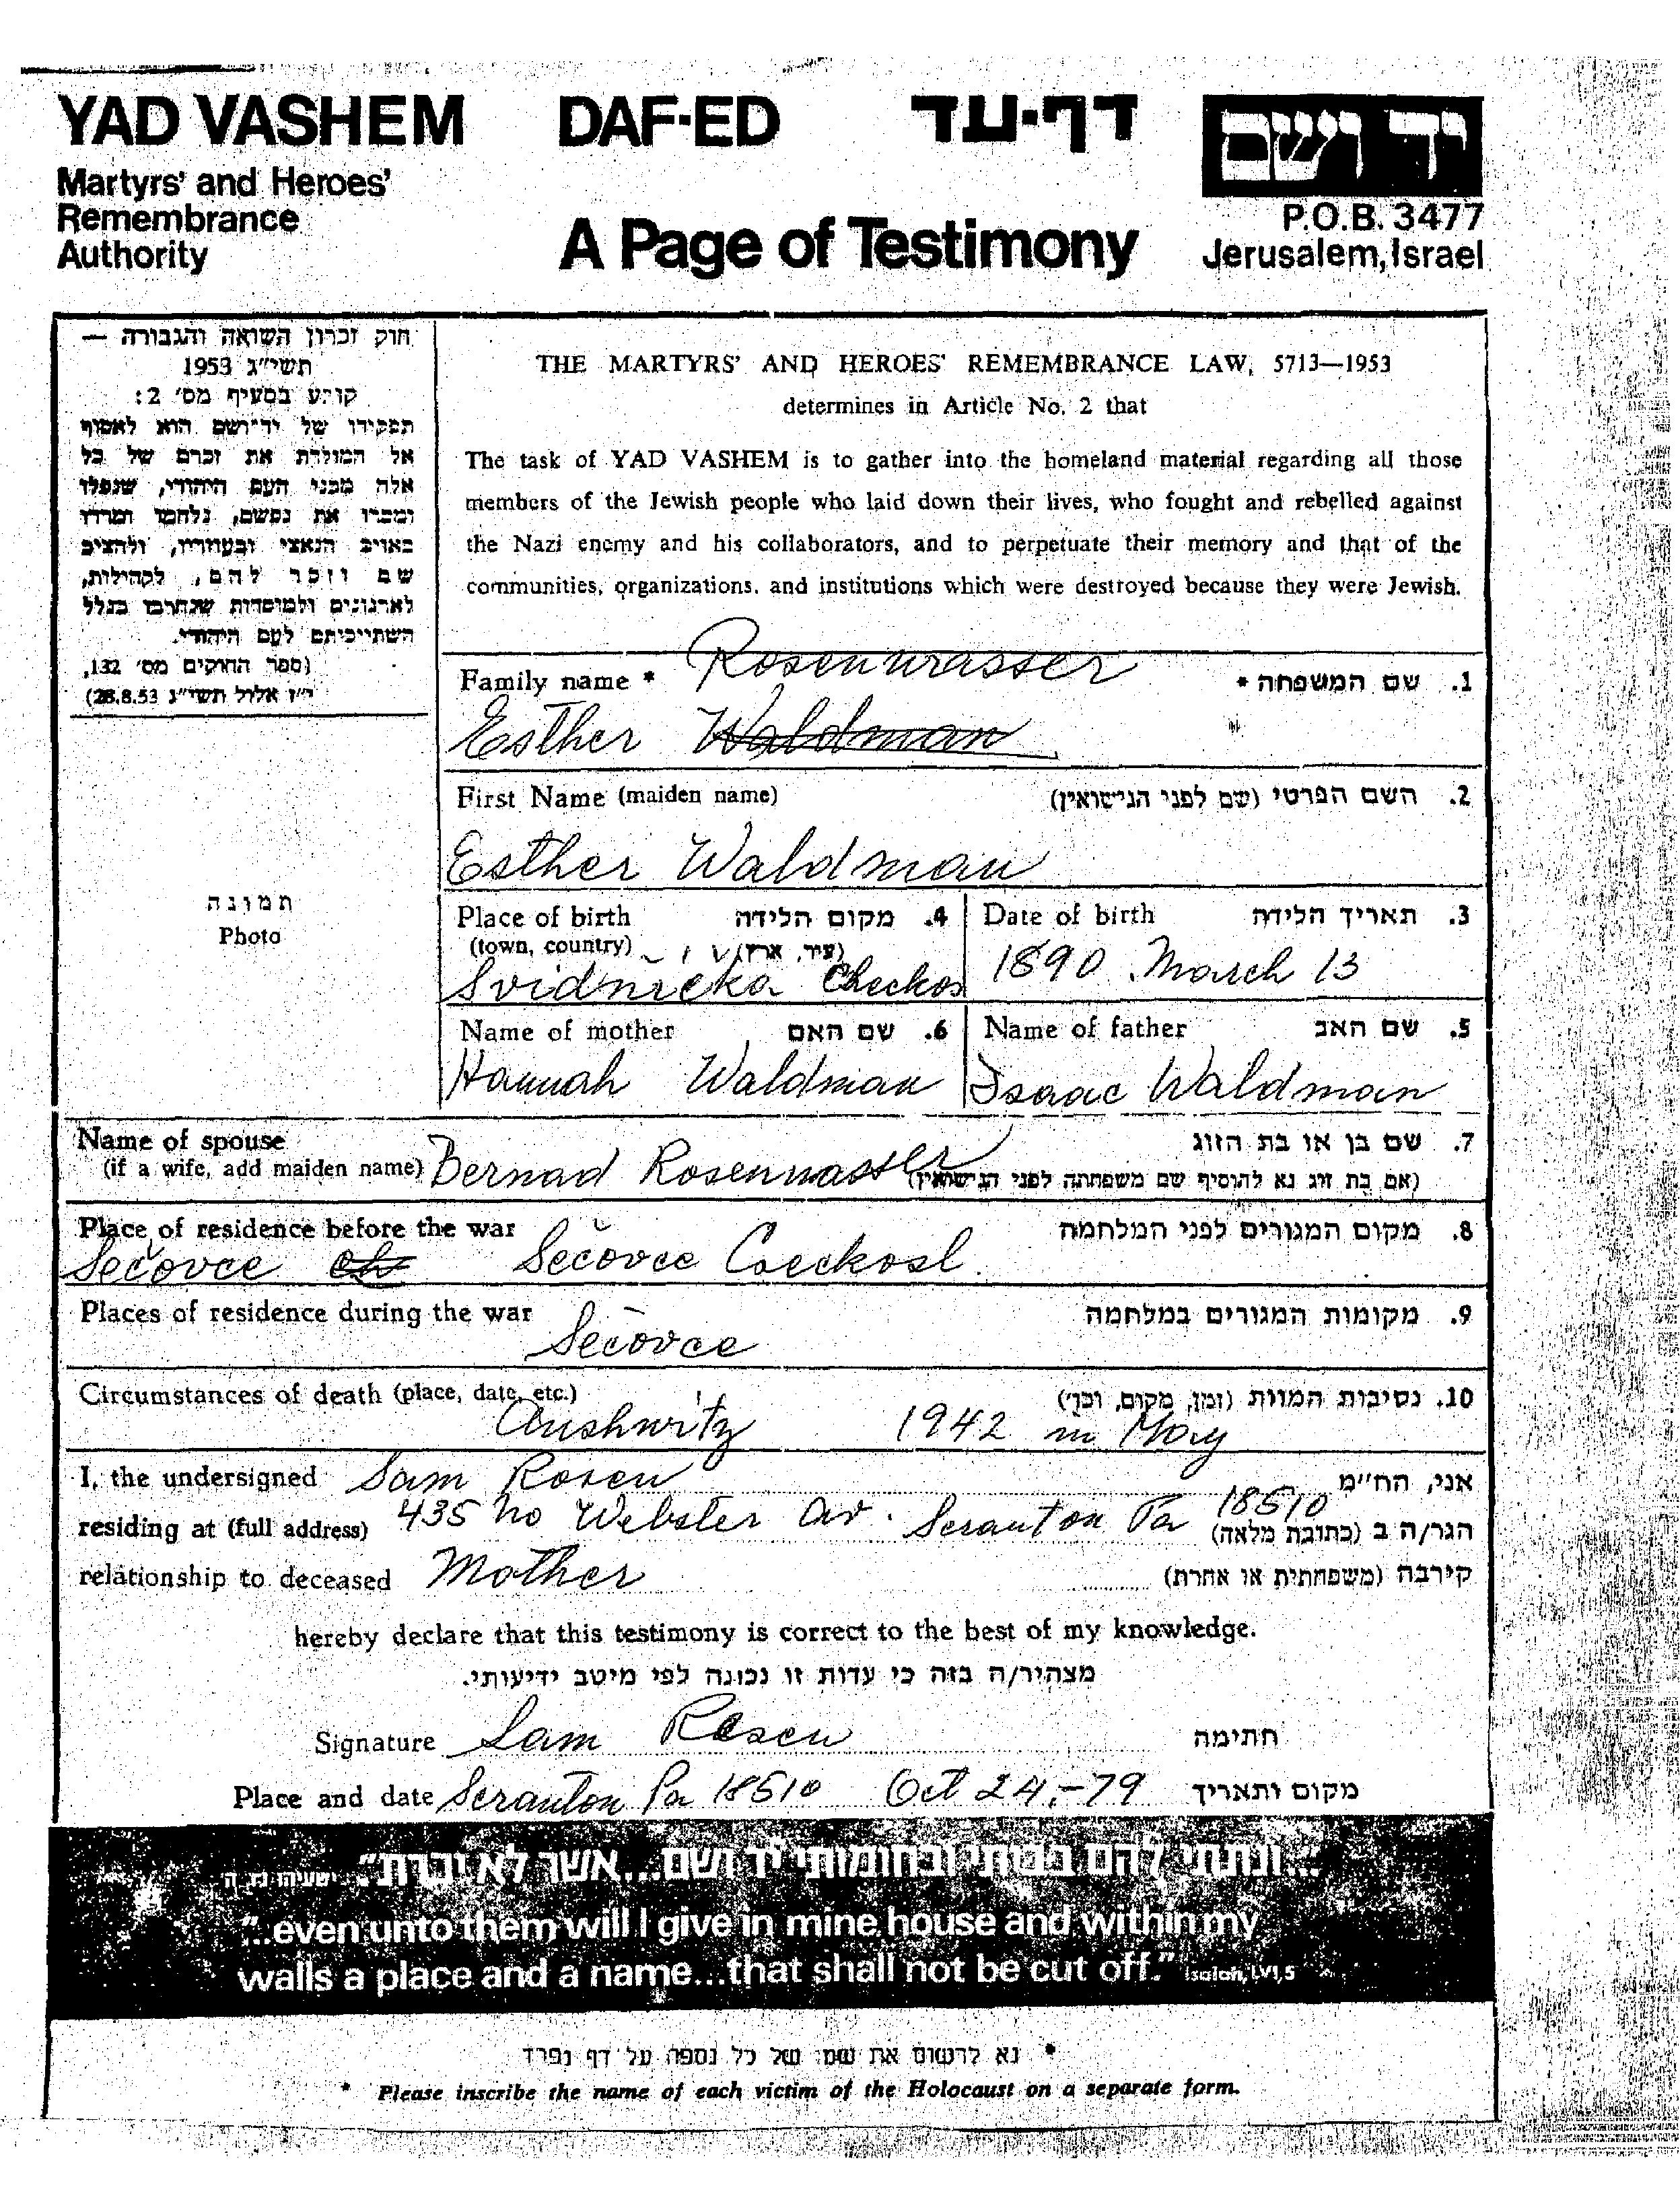 YAD VASHEM DAF-ED דף-עד יד ושם
Martyrs' and Heroes'
Remembrance
Authority
A Page of Testimony
P.O.B. 3477
Jerusalem, Israel
חוק זכרון השואה והגבורה —
תשי״ג 1953
קובע בסעיף מס׳ 2:
תפקידו של יד־ושם הוא לאסוף
אל המולדת את זכרם של כל
אלה מבני העם היהודי, שנפלו
ומסרו את נפשם, נלחמו ומרדו
באויב הנאצי ובעוזריו, ולהציב
שם וזכר להם, לקהילות,
לארגונים ולמוסדות שנחרבו בגלל
השתייכותם לעם היהודי.
(ספר החוקים מס׳ 132,
י״ז אלול תשי״ג 28.8.53)
THE MARTYRS' AND HEROES' REMEMBRANCE LAW, 5713—1953
determines in Article No. 2 that
The task of YAD VASHEM is to gather into the homeland material regarding all those
members of the Jewish people who laid down their lives, who fought and rebelled against
the Nazi enemy and his collaborators, and to perpetuate their memory and that of the
communities, organizations, and institutions which were destroyed because they were Jewish.
Family name * Rosenwasser 1. שם המשפחה *
Esther Waldman
First Name (maiden name) 2. השם הפרטי (שם לפני הנישואין)
Esther Waldman
תמונה
Photo
Place of birth 4. מקום הלידה
(town, country) (עיר, ארץ)
Svidnička Checkos
Date of birth 3. תאריך הלידה
1890 March 13
Name of mother 6. שם האם
Hannah Waldman
Name of father 5. שם האב
Isaac Waldman
Name of spouse 7. שם בן או בת הזוג
(if a wife, add maiden name) Bernad Rosenwasser (אם בת זוג נא להוסיף שם משפחתה לפני הנישואין)
Place of residence before the war 8. מקום המגורים לפני המלחמה
Sečovce Sečovce Czeckosl.
Places of residence during the war 9. מקומות המגורים במלחמה
Sečovce
Circumstances of death (place, date, etc.) 10. נסיבות המוות (זמן, מקום, וכד׳)
Aushwitz 1942 in May
I, the undersigned Sam Rosen אני, הח״מ
residing at (full address) 435 No Webster Av. Scranton Pa 18510 הגר/ה ב (כתובת מלאה)
relationship to deceased Mother קירבה (משפחתית או אחרת)
hereby declare that this testimony is correct to the best of my knowledge.
מצהיר/ה בזה כי עדות זו נכונה לפי מיטב ידיעותי.
Signature Sam Rosen חתימה
Place and date Scranton Pa 18510 Oct 24,-79 מקום ותאריך
"...ונתתי להם בביתי ובחומותי יד ושם...אשר לא יכרת" ישעיהו נו, ה
"...even unto them will I give in mine house and within my
walls a place and a name...that shall not be cut off." Isaiah, LVI,5
* נא לרשום את שמו של כל נספה על דף נפרד
* Please inscribe the name of each victim of the Holocaust on a separate form.